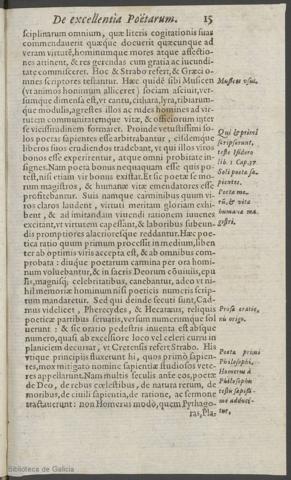 De excellentia Poëtarum. 15
sciplinarum omnium, quæ literis cogitationis suas
commendauerit quæque docuerit quæcunque ad
veram virtutē, hominumque mores atque affectio-
nes attinent, & res gerendas cum gratia ac iucundi-
tate commisceret. Hoc & Strabo refert, & Græci o-
mnes scriptores testantur. Hæc quidē sibi Musicen
Musices vsus.
(vt animos hominum alliceret) sociam asciuit, ver-
sumque dimensa est, vt cantu, cithara, lyra, tibiarum-
que modulis, agrestes illos ac rudes homines ad vir-
tutem communitatemque vitæ, & officiorum inter
se vicissitudinem formaret. Proinde vetustissimi so-
los poetas sapientes esse arbitrabantur, eisdemque
liberos suos erudiendos tradebant, vt qui illos viros
bonos esse experirentur, atque omni probitate in-
signes. Nam poeta bonus nequaquam esse quis po-
test, nisi etiam vir bonus existat. Et sic poetæ se mo-
rum magistros, & humanæ vitæ emendatores esse
profitebantur. Suis namque carminibus quum vi-
ros claros landent, virtuti meritam gloriam exhi-
bent, & ad imitandam viuendi rationem iuuenes
excitant, vt virtutem capessant, & laboribus subeun-
dis promptiores alacrioresque reddantur. Hæc poe-
tica ratio quum primum processit in medium, liben
ter ab optimis viris accepta est, & ab omnibus com-
probata: diuque poetarum camina per ora homi-
num voluebantur, & in sacris Deorum cōuiuiis, epu
lis, magnisq; celebritatibus, canebantur, adeo vt ni-
hil memoriæ hominum nisi poeticis numeris scrip-
tum mandaretur. Sed qui deinde secuti sunt, Cad-
mus videlicet, Pherecydes, & Hecatæus, reliquis
poeticæ partibus seruatis, versum numerumque sol
uerunt: & sic oratio pedestris inuenta est absque
numero, quasi ab excelsiore loco vel celeri curru in
planiciem decimur, vt Cretensis refert Strabo. His
vtique principiis fluxerunt hi, quos primò sapien-
tes, mox mitigato nomine sapientiæ studiosos vete-
res appellarunt. Nam multis seculis ante eos, poetæ
de Deo, de rebus cœlestibus, de natura rerum, de
moribus, de ciuili sapientia, de ratione, ac sermone
tractauerunt: non Homerus modò, quem Pythago-
ras, Pla-
Qui & primi
scripserunt,
teste Isidoro
lib. 1 Cap. 37.
Soli poeta sa-
pientes.
Poeta mo-
rū, & vitæ
humanæ ma-
gistri.
Prosa oratio,
vn origo.
Poeta primi
Philosophi,
Homerus à
Philosophis
testis sapissi-
me adduci-
tur,
Biblioteca de Galicia